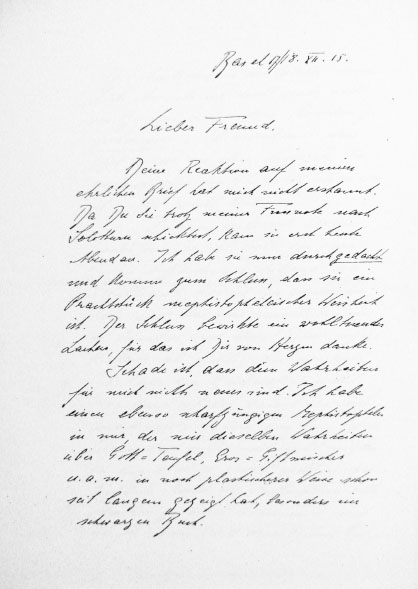 Basel 17/18. XII. 15.
Lieber Freund.
Deine Reaktion auf meinen
ehrlichen Brief hat mich nicht erstaunt.
Da Du sie trotz meiner nach
Solothurn schicktest, kam sie erst heute
Abend an. Ich habe sie nun durchgedacht
und komme zum Schluss, dass sie ein
Prachtstück mephistophelischer Weisheit
ist. Der Schluss bewirkte ein wohltuendes
Lachen, für das ich Dir von Herzen danke.
Schade ist, dass diese Wahrheiten
für mich nichts neues sind. Ich habe
einen ebenso scharfzüngigen Mephistopheles
in mir, der mir dieselben Wahrheiten
über Gott = Teufel, Eros = Giftmischer
u. a. m. in noch plastischerer Weise schon
seit langem gezeigt hat, besonders im
schwarzen Buch.